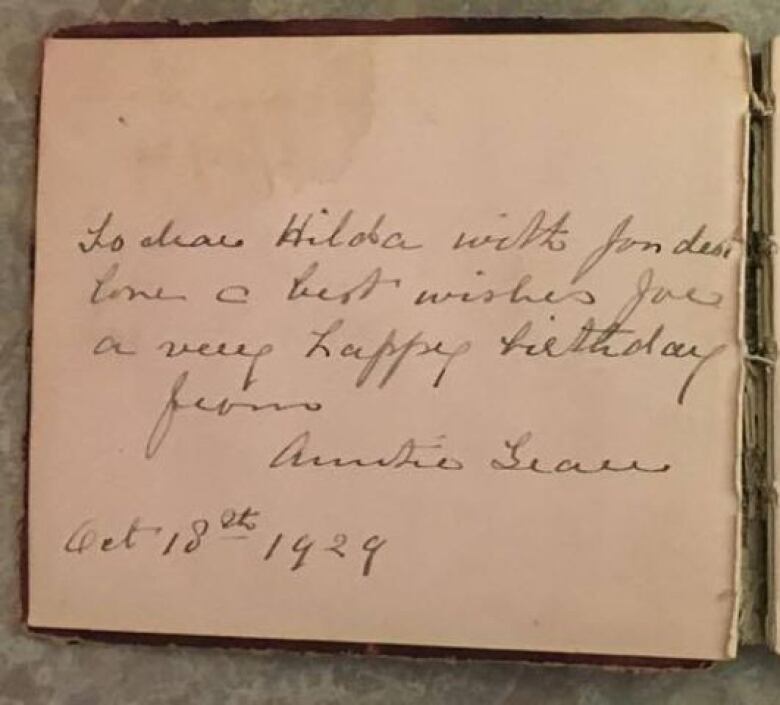 To dear Hilda with fondest
love & best wishes for
a very happy birthday
from
Auntie
Oct 18th 1929